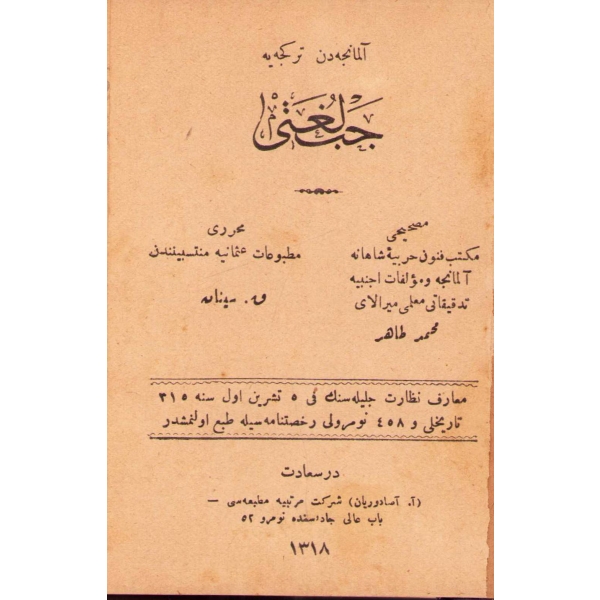 آلمانجه‌دن تركجه‌یه
جَبْ لُغَتِی
مصححی
مكتب فنون حربیۀ شاهانه
آلمانجه و مؤلفات اجنبیه
تدقیقاتی معلمی میرالای
محمد طاهر
محرری
مطبوعات عثمانیه منتسبیندن
و. سینان
معارف نظارت جلیله‌سنك فی ٥ تشرین اول سنه ٣١٥
تاریخلی و ٤٥٨ نومرولی رخصتنامه‌سیله طبع اولنمشدر
درسعادت
(آ. آصادوریان) شركت مرتبیه مطبعه‌سی —
باب عالی جاده‌سنده نومرو ٥٢
١٣١٨